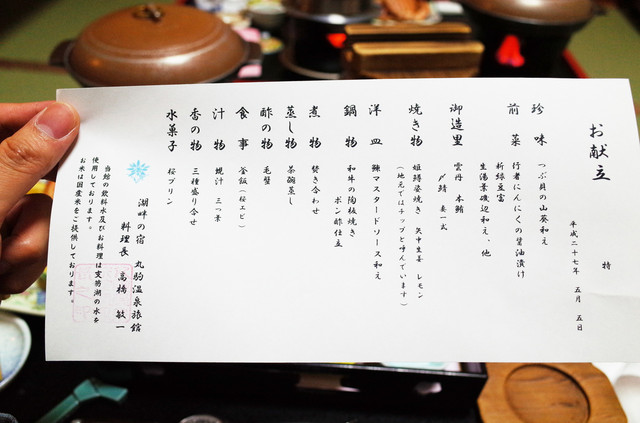 お献立 特
平成二十七年 五月 五日
珍味 つぶ貝の山葵和え
前菜 行者にんにくの醤油漬け
新緑豆富
生湯葉磯辺和え、他
御造里 雲丹 本鮪
〆鯖 妻一式
焼き物 姫鱒姿焼き 矢中生姜 レモン
(地元ではチップと呼んでいます)
洋皿 鰊マスタードソース和え
鍋物 和牛の陶板焼き
ポン酢仕立
煮物 焚き合わせ
蒸し物 茶碗蒸し
酢の物 毛蟹
食事 釜飯(桜エビ)
汁物 蜆汁 三つ葉
香の物 三種盛り合せ
水菓子 桜プリン
湖畔の宿 丸駒温泉旅館
料理長 高橋 敏一
当館の飲料水及びお料理は支笏湖の水を
使用しております。
お米は国産米をご提供しております。